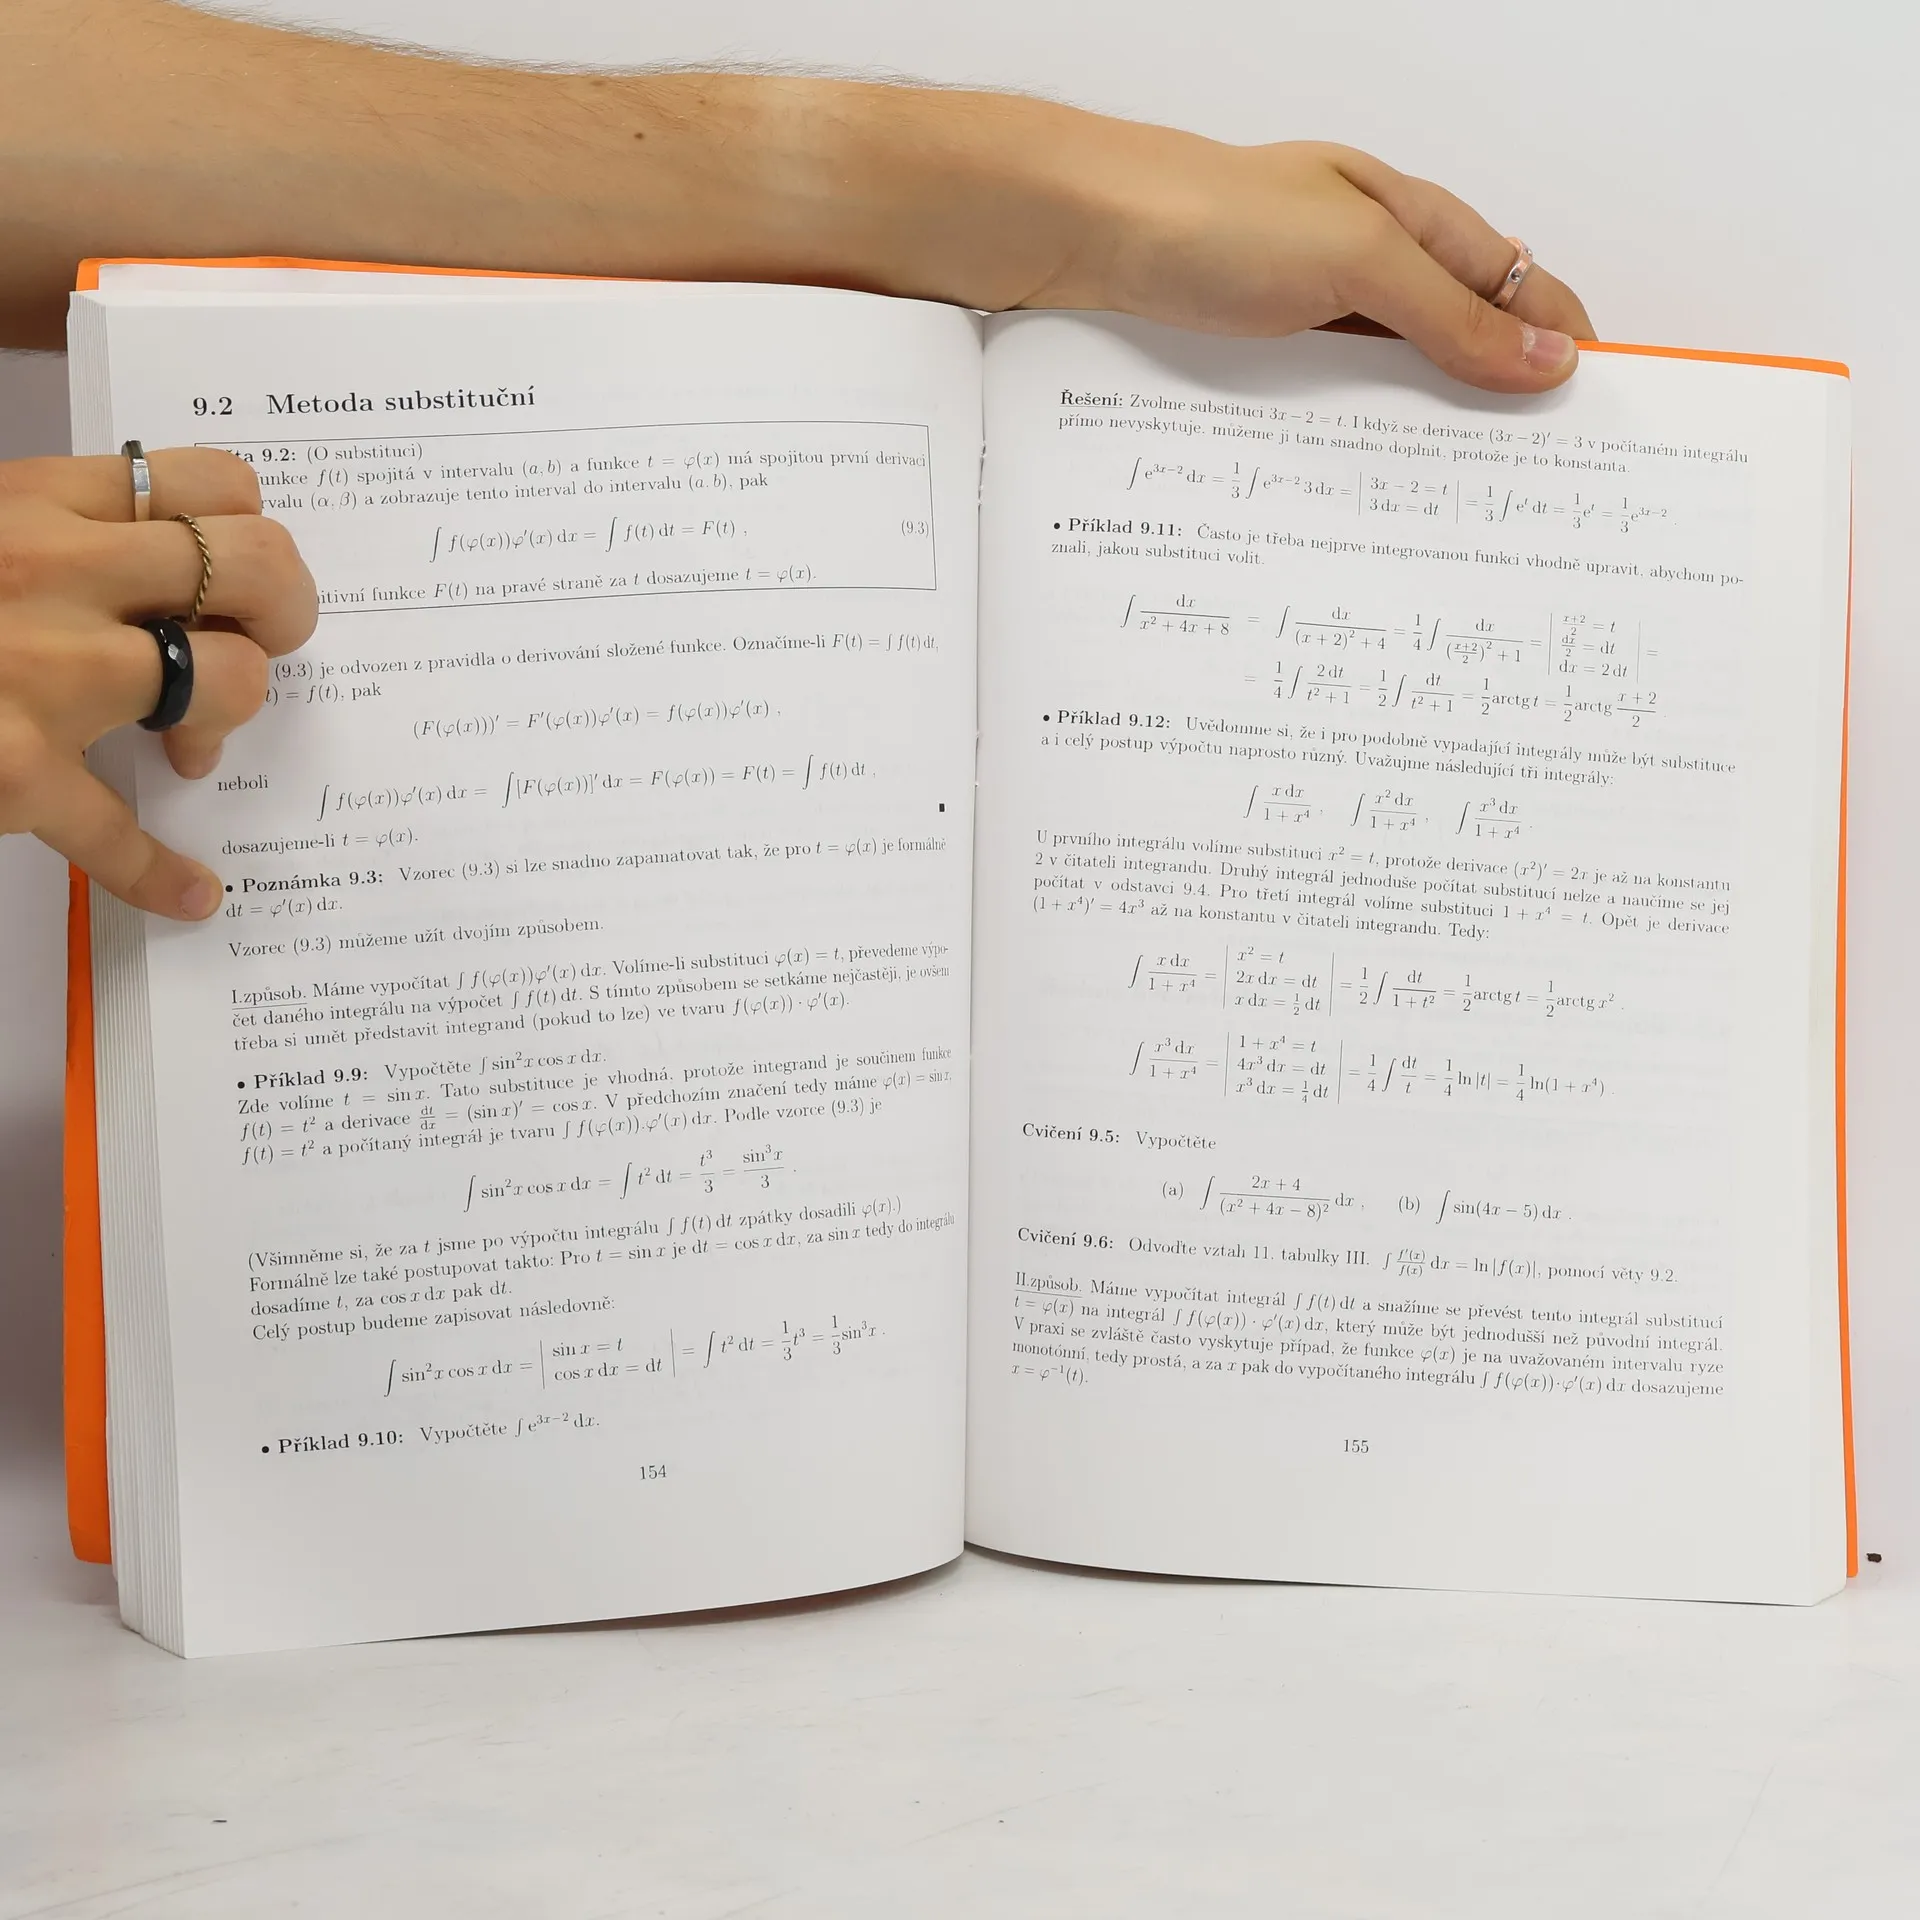 9.2 Metoda substituční
9.2: (O substituci)
funkce f(t) spojitá v intervalu (a, b) a funkce t = φ(x) má spojitou první derivaci
(α, β) a zobrazuje tento interval do intervalu (a, b), pak
∫ f(φ(x))φ′(x) dx = ∫ f(t) dt = F(t) , (9.3)
funkce F(t) na pravé straně za t dosazujeme t = φ(x).
(9.3) je odvozen z pravidla o derivování složené funkce. Označíme-li F(t) = ∫ f(t) dt,
= f(t), pak
(F(φ(x)))′ = F′(φ(x))φ′(x) = f(φ(x))φ′(x) ,
neboli
∫ f(φ(x))φ′(x) dx = ∫[F(φ(x))]′ dx = F(φ(x)) = F(t) = ∫ f(t) dt ,
dosazujeme-li t = φ(x).
• Poznámka 9.3: Vzorec (9.3) si lze snadno zapamatovat tak, že pro t = φ(x) je formálně
dt = φ′(x) dx.
Vzorec (9.3) můžeme užít dvojím způsobem.
I.způsob. Máme vypočítat ∫ f(φ(x))φ′(x) dx. Volíme-li substituci φ(x) = t, převedeme výpo-
čet daného integrálu na výpočet ∫ f(t) dt. S tímto způsobem se setkáme nejčastěji, je ovšem
třeba si umět představit integrand (pokud to lze) ve tvaru f(φ(x)) · φ′(x).
• Příklad 9.9: Vypočtěte ∫ sin²x cos x dx.
Zde volíme t = sin x. Tato substituce je vhodná, protože integrand je součinem funkce
f(t) = t² a derivace dt/dx = (sin x)′ = cos x. V předchozím značení tedy máme φ(x) = sin x,
f(t) = t² a počítaný integrál je tvaru ∫ f(φ(x)).φ′(x) dx. Podle vzorce (9.3) je
∫ sin²x cos x dx = ∫ t² dt = t³/3 = sin³x/3 .
(Všimněme si, že za t jsme po výpočtu integrálu ∫ f(t) dt zpátky dosadili φ(x).)
Formálně lze také postupovat takto: Pro t = sin x je dt = cos x dx, za sin x tedy do integrálu
dosadíme t, za cos x dx pak dt.
Celý postup budeme zapisovat následovně:
∫ sin²x cos x dx = | sin x = t; cos x dx = dt | = ∫ t² dt = 1/3 t³ = 1/3 sin³x .
• Příklad 9.10: Vypočtěte ∫ e^(3x−2) dx.
154
Řešení: Zvolme substituci 3x − 2 = t. I když se derivace (3x − 2)′ = 3 v počítaném integrálu
přímo nevyskytuje, můžeme ji tam snadno doplnit, protože je to konstanta.
∫ e^(3x−2) dx = 1/3 ∫ e^(3x−2) 3 dx = | 3x − 2 = t; 3 dx = dt | = 1/3 ∫ e^t dt = 1/3 e^t = 1/3 e^(3x−2) .
• Příklad 9.11: Často je třeba nejprve integrovanou funkci vhodně upravit, abychom po-
znali, jakou substituci volit.
∫ dx/(x² + 4x + 8) = ∫ dx/((x + 2)² + 4) = 1/4 ∫ dx/(((x+2)/2)² + 1) = | (x+2)/2 = t; dx/2 = dt; dx = 2 dt | =
= 1/4 ∫ 2 dt/(t² + 1) = 1/2 ∫ dt/(t² + 1) = 1/2 arctg t = 1/2 arctg (x + 2)/2 .
• Příklad 9.12: Uvědomme si, že i pro podobně vypadající integrály může být substituce
a i celý postup výpočtu naprosto různý. Uvažujme následující tři integrály:
∫ x dx/(1 + x⁴) , ∫ x² dx/(1 + x⁴) , ∫ x³ dx/(1 + x⁴) .
U prvního integrálu volíme substituci x² = t, protože derivace (x²)′ = 2x je až na konstantu
2 v čitateli integrandu. Druhý integrál jednoduše počítat substitucí nelze a naučíme se jej
počítat v odstavci 9.4. Pro třetí integrál volíme substituci 1 + x⁴ = t. Opět je derivace
(1 + x⁴)′ = 4x³ až na konstantu v čitateli integrandu. Tedy:
∫ x dx/(1 + x⁴) = | x² = t; 2x dx = dt; x dx = 1/2 dt | = 1/2 ∫ dt/(1 + t²) = 1/2 arctg t = 1/2 arctg x² .
∫ x³ dx/(1 + x⁴) = | 1 + x⁴ = t; 4x³ dx = dt; x³ dx = 1/4 dt | = 1/4 ∫ dt/t = 1/4 ln |t| = 1/4 ln(1 + x⁴) .
Cvičení 9.5: Vypočtěte
(a) ∫ (2x + 4)/(x² + 4x − 8)² dx , (b) ∫ sin(4x − 5) dx .
Cvičení 9.6: Odvoďte vztah 11. tabulky III. ∫ f′(x)/f(x) dx = ln |f(x)|, pomocí věty 9.2.
II.způsob. Máme vypočítat integrál ∫ f(t) dt a snažíme se převést tento integrál substitucí
t = φ(x) na integrál ∫ f(φ(x)) · φ′(x) dx, který může být jednodušší než původní integrál.
V praxi se zvláště často vyskytuje případ, že funkce φ(x) je na uvažovaném intervalu ryze
monotónní, tedy prostá, a za x pak do vypočítaného integrálu ∫ f(φ(x))·φ′(x) dx dosazujeme
x = φ⁻¹(t).
155